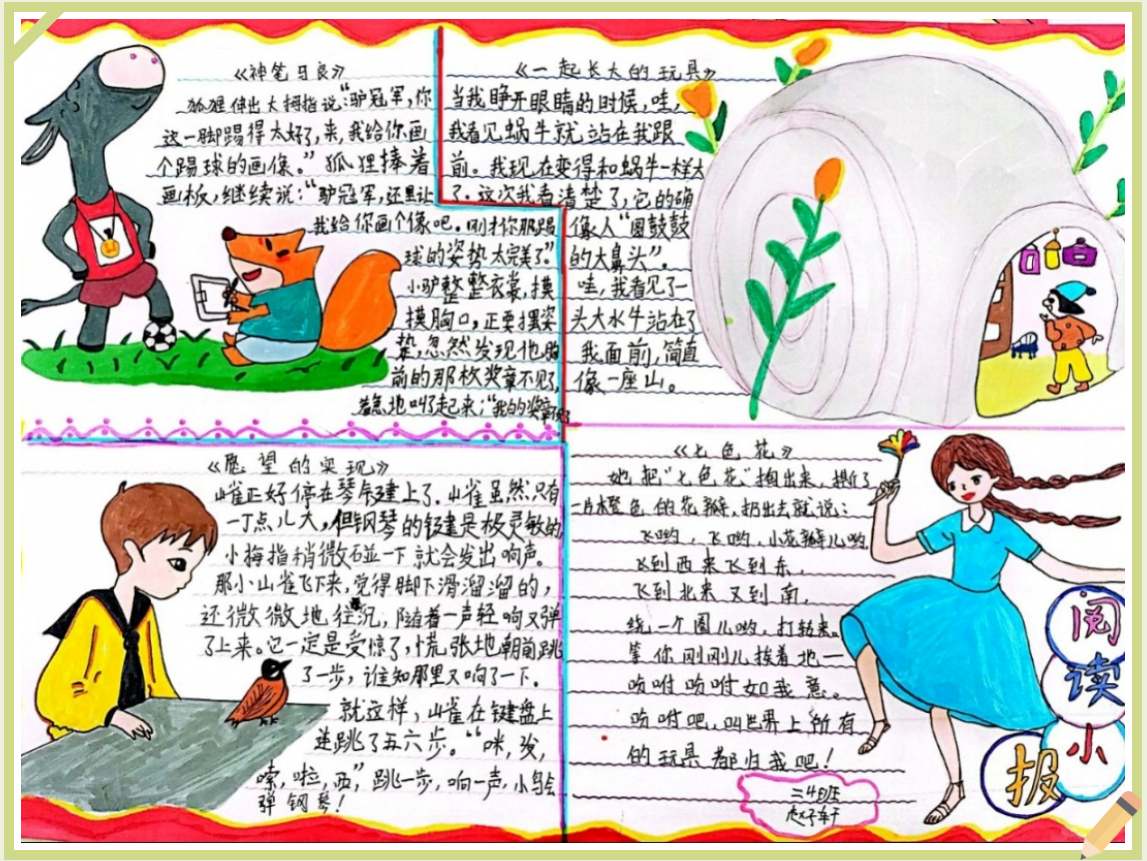 《神笔马良》
狐狸伸出大拇指说:“驴冠军,你
这一脚踢得太好了,来,我给你画
个踢球的画像。”狐狸捧着
画板,继续说:“驴冠军,还是让
我给你画个像吧。刚才你那踢
球的姿势太完美了”
小驴整整衣裳,摸
摸胸口,正要摆姿
势,忽然发现他胸
前的那枚奖章不见了,
着急地叫了起来:“我的奖章
《一起长大的玩具》
当我睁开眼睛的时候,哇,
我看见蜗牛就站在我跟
前。我现在变得和蜗牛一样大
了.这次我看清楚了,它的确
像人“圆鼓鼓
的大鼻头”。
哇,我看见了一
头大水牛站在了
我面前,简直
像一座山。
《愿望的实现》
山雀正好停在琴键上了.山雀虽然只有
一丁点儿大,但钢琴的键是极灵敏的
小拇指稍微碰一下就会发出响声。
那小山雀飞下来,觉得脚下滑溜溜的,
还微微地往沉,随着一声轻响又弹
了上来。它一定是受惊了,慌张地朝前跳
了一步,谁知那里又响了一下。
就这样,山雀在键盘上
连跳了五六步。“咪,发,
嗦,啦,西”跳一步,响一声,小鸟会
弹钢琴!
《七色花》
她把“七色花”掏出来,撕了
一片橙色的花瓣,扔出去就说:
飞哟,飞哟,小花瓣儿哟,
飞到西来飞到东,
飞到北来又到南,
绕一个圈儿哟,打转来。
等你刚刚儿挨着地—
吩咐吩咐如我意。
吩咐吧,叫世界上所有
的玩具都归我吧!
二4班
赵子轩
阅
读
小
报